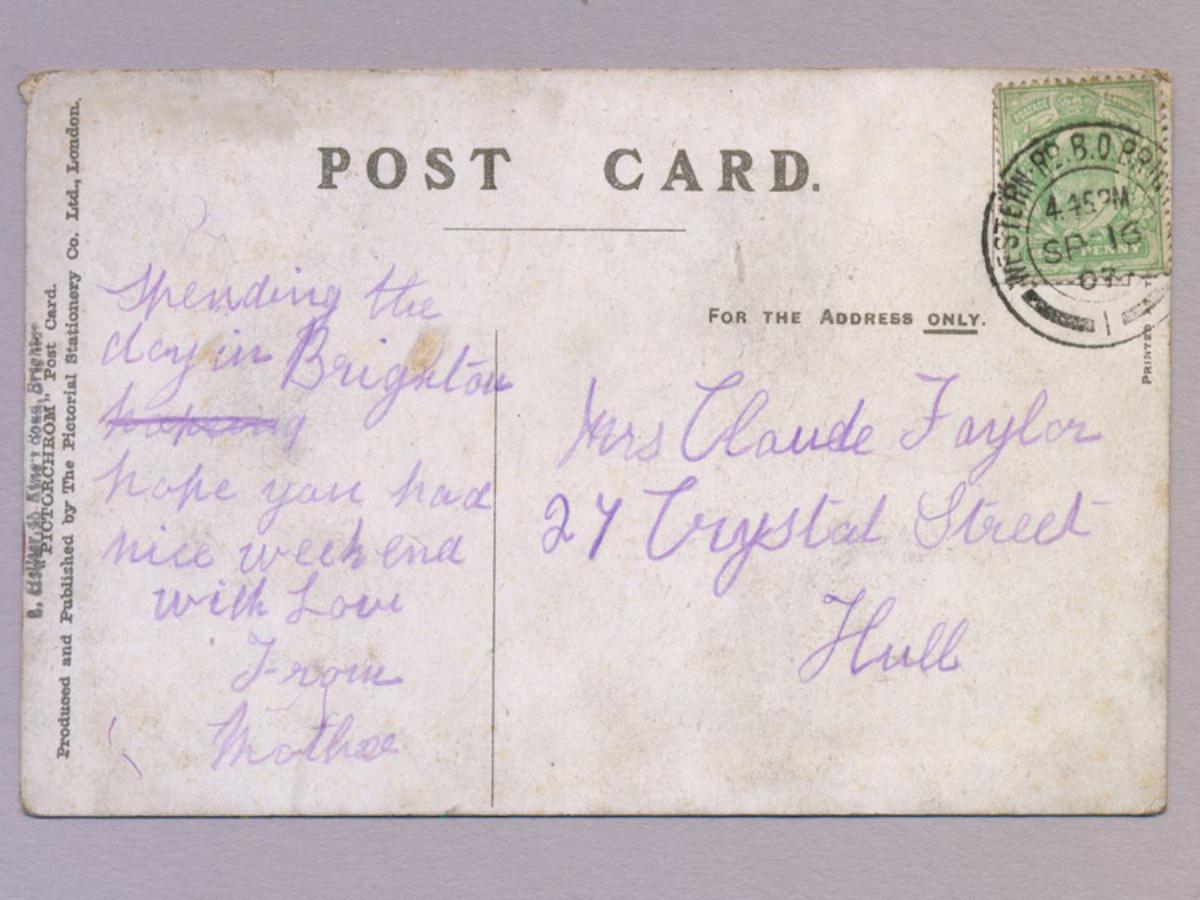 POST CARD.
FOR THE ADDRESS ONLY.
Spending the
day in Brighton
hope you had
nice week end
with Love
From
Mother
Mrs Claude Taylor
27 Crystal Street
Hull
WESTERN RD. B.O. BRIG
4.45 PM
SP 16
07
POSTAGE
PENNY
"PICTORCHROM" Post Card.
Produced and Published by The Pictorial Stationery Co. Ltd., London.
PRINTED